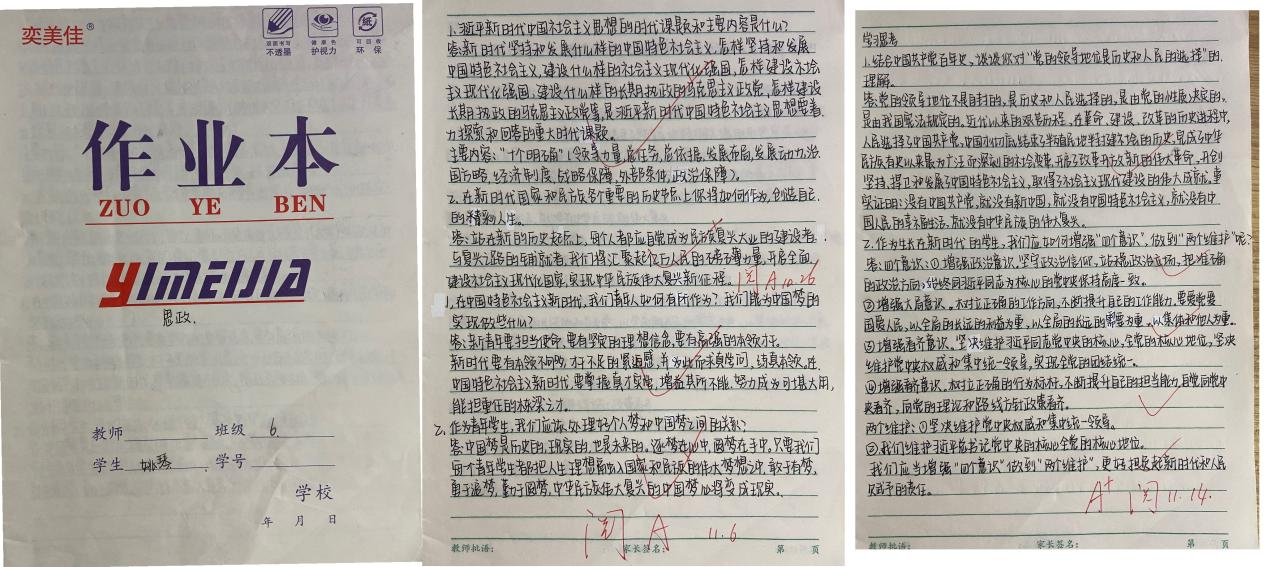 奕美佳®
双面书写
不透墨
健康色
护视力
可回收
环保
作业本
ZUO YE BEN
YIMEIJIA
思政.
教师 班级 6
学生 姚琴 学号
学校
年 月 日
1.习近平新时代中国社会主义思想的时代课题和主要内容是什么?
答:新时代坚持和发展什么样的中国特色社会主义,怎样坚持和发展
中国特色社会主义,建设什么样的社会主义现代化强国,怎样建设社会
主义现代化强国,建设什么样的长期执政的马克思主义政党,怎样建设
长期执政的马克思主义政党等,是习近平新时代中国特色社会主义思想要着
力探索和回答的重大时代课题。
主要内容:"十个明确"(领导力量,总任务,总依据,发展布局,发展动力,治
国方略,经济制度,战略保障,外部条件,政治保障)。
2.在新时代国家和民族各个重要的历史节点上你将如何作为,创造自己
的精彩人生。
答:站在新的历史起点上,每个人都应自觉成为民族复兴大业的建设者,
与复兴之路的开创者,我们将汇聚起亿万人民的磅礴力量,开启全面
建设社会主义现代化国家,实现中华民族伟大复兴新征程。
阅 A 10.26
1.在中国特色社会主义新时代,我们青年人如何有所作为?我们能为中国梦的
实现做些什么?
答:新青年要担当使命,要有坚定的理想信念,要有高强的本领才干。
新时代要有本领不够,才干不足的紧迫感,并为此而求真学问,练真本领,在
中国特色社会主义新时代,要掌握真才实学,增益其所不能,努力成为可堪大用,
能担重任的栋梁之才。
2.作为青年学生,我们应该处理好个人梦和中国梦之间的关系?
答:中国梦是历史的,现实的,也是未来的。逐梦在心中,圆梦在手中,只要我们
每个青年学生都把人生理想融入国家和民族的伟大梦想之中,敢于有梦,
勇于追梦,勤于圆梦,中华民族伟大复兴的中国梦必将变成现实。
阅 A 11.6
教师批语: 家长签名: 第 页
学习思考
1.结合中国共产党百年史,谈谈你对"党的领导地位是历史和人民的选择"的
理解。
答:党的领导地位不是自封的,是历史和人民选择的,是由党的性质决定的,
是由我国宪法规定的,近代以来的艰苦历程,在革命、建设、改革的历史进程中,
人民选择了中国共产党,中国才彻底结束了半殖民地半封建社会的历史,完成了中华
民族有史以来最为广泛而深刻的社会变革,开启了改革开放新的伟大革命,开创
坚持,捍卫和发展了中国特色社会主义,取得了社会主义现代建设的伟大成就,事
实证明:没有中国共产党,就没有新中国,就没有中国特色社会主义,就没有中
国人民的幸福生活,就没有中华民族的伟大复兴。
2.作为生长在新时代的学生,我们应如何增强"四个意识",做到"两个维护"呢?
答:四个意识:①增强政治意识。坚守政治信仰,站稳政治立场,把准确
的政治方向,始终同习近平同志为核心的党中央保持高度一致。
②增强大局意识。树立正确的工作方向,不断提升自己的工作能力,要爱党爱
国爱人民,以全局的长远的利益为重,以全局的长远的需要为重,以集体和他人为重。
③增强核心意识。坚决维护习近平同志党中央的核心,全党的核心地位,坚决
维护党中央权威和集中统一领导,实现全党的团结统一。
④增强看齐意识。树立正确的行为标杆,不断提升自己的担当能力,自觉向党中
央看齐,向党的理论和路线方针政策看齐。
两个维护:①坚决维护党中央权威和集中统一领导。
②我们维护习近平总书记党中央的核心全党的核心地位。
我们应当增强"四个意识"做到"两个维护",更好担负起新时代和人民
赋予的责任。
A+ 阅 11.14.
教师批语: 家长签名: 第 页